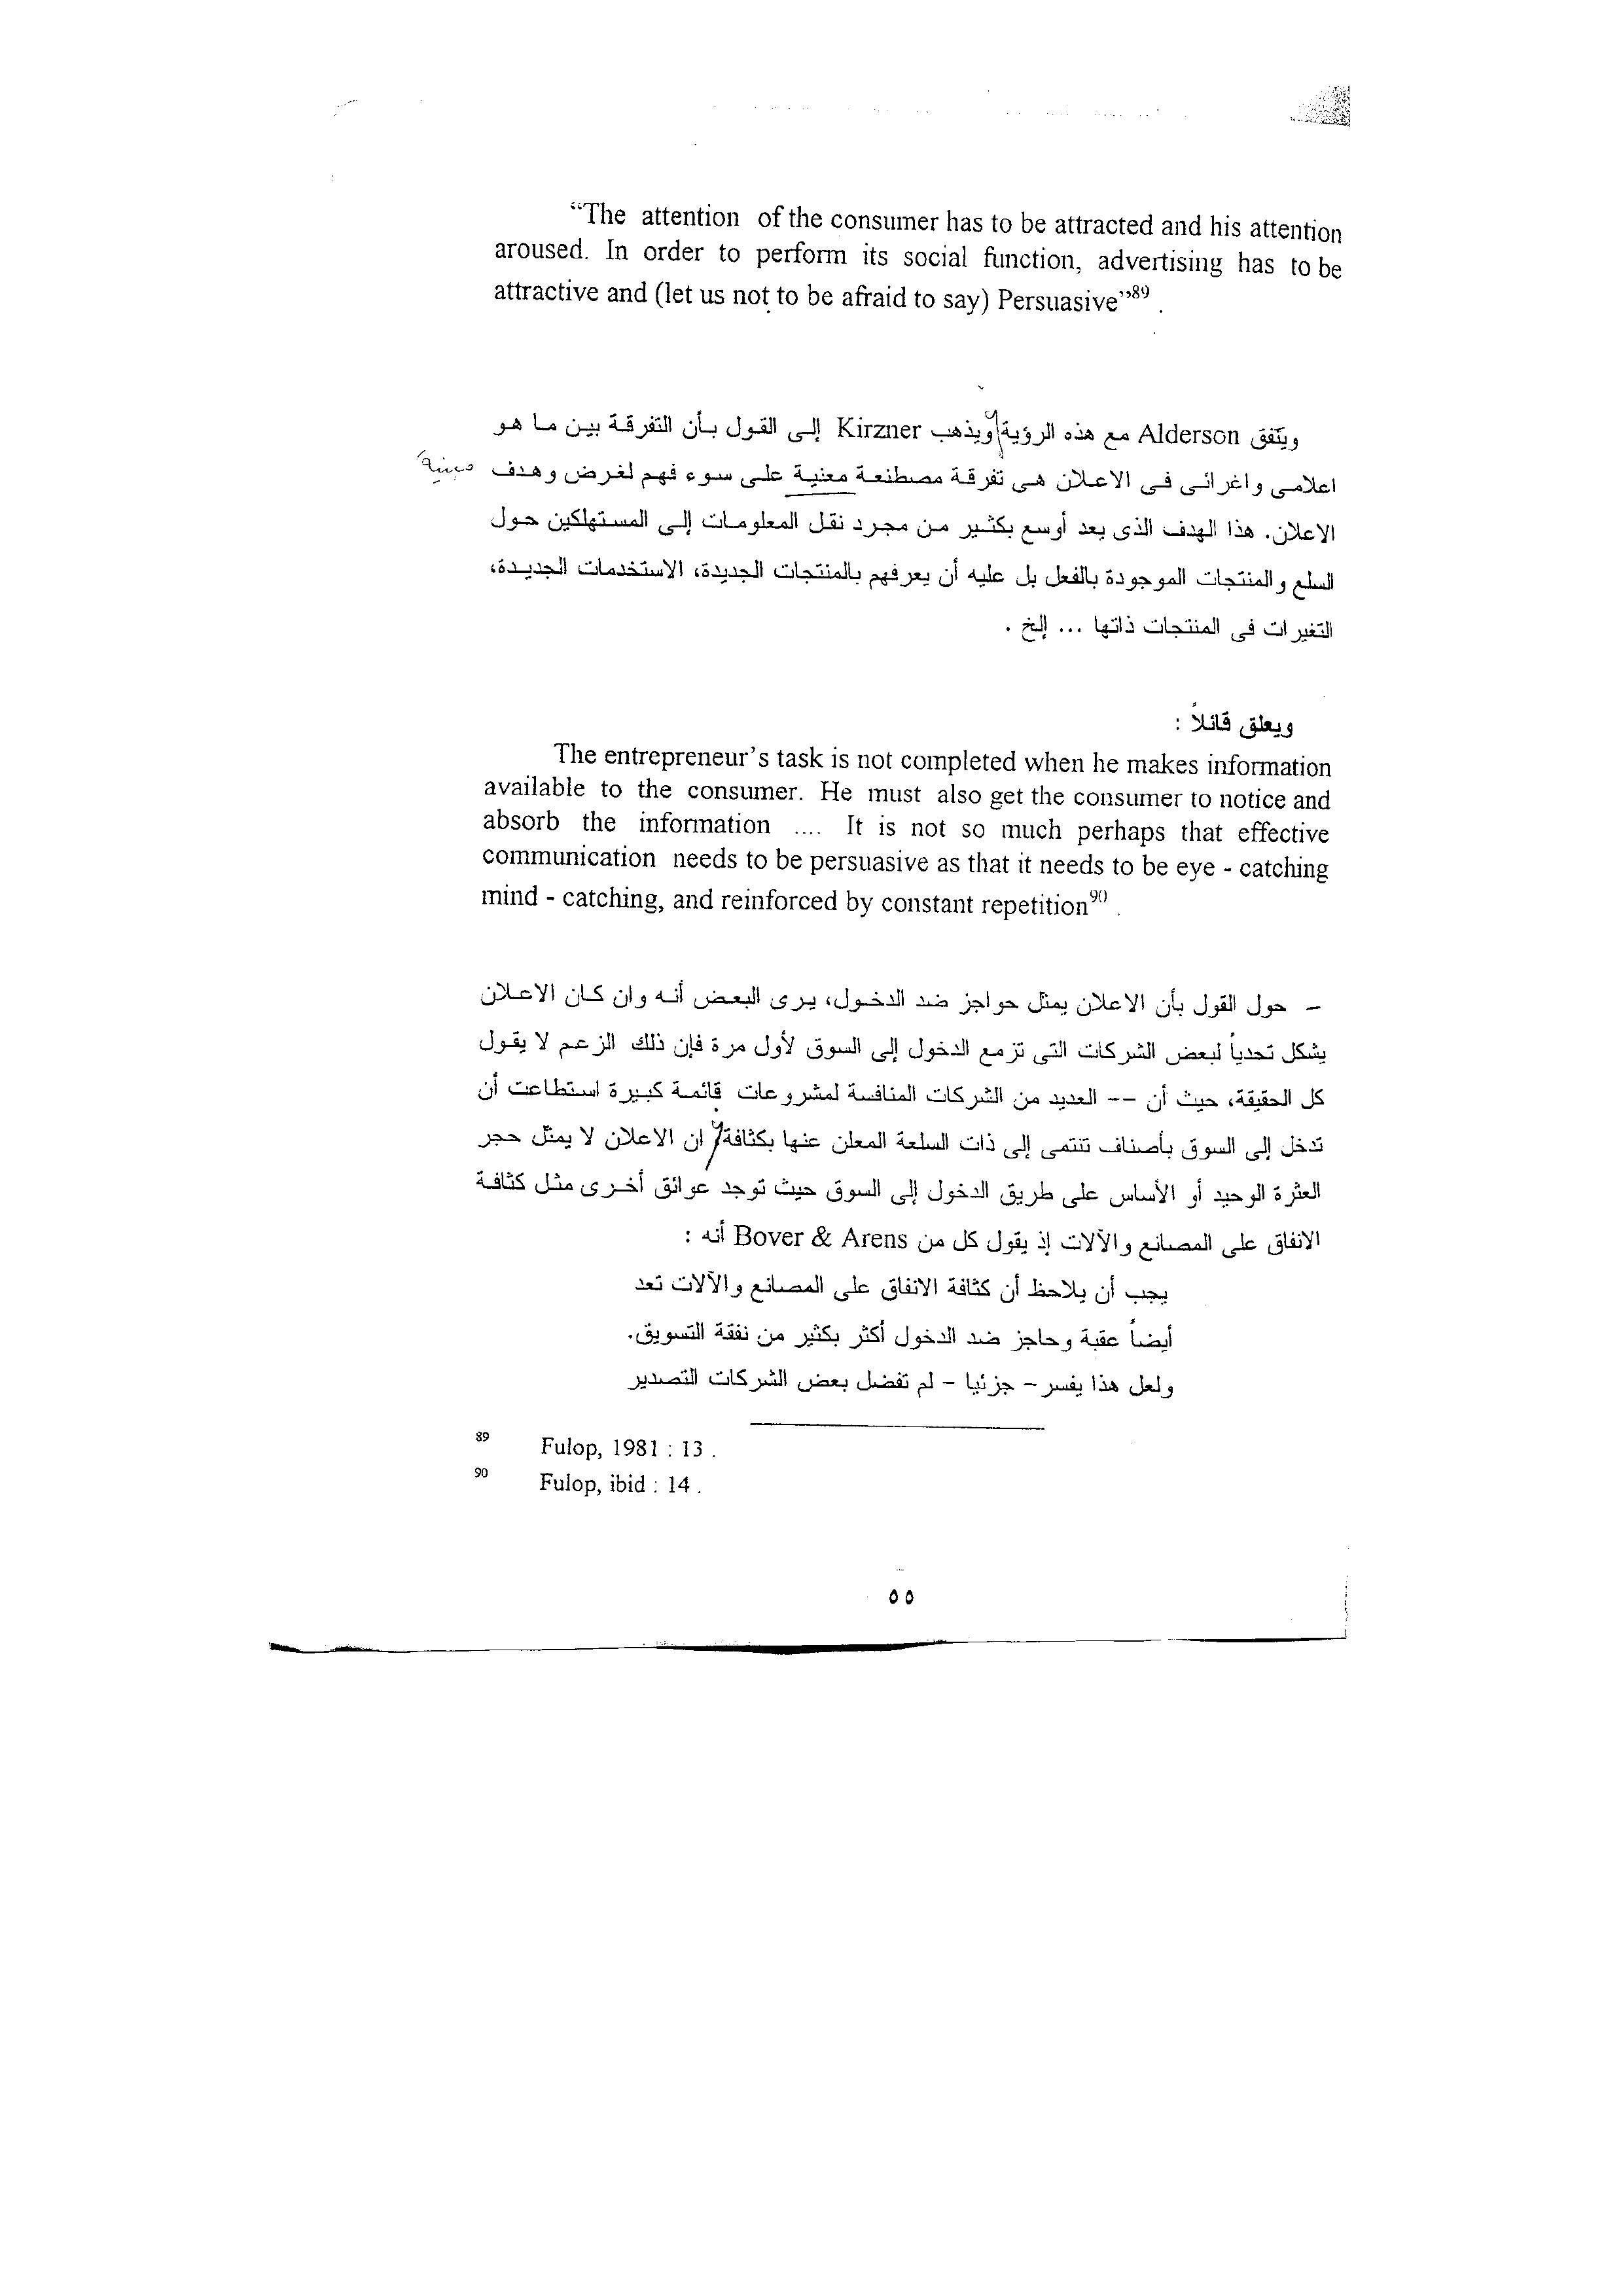 “The attention of the consumer has to be attracted and his attention
aroused. In order to perform its social function, advertising has to be
attractive and (let us not to be afraid to say) Persuasive”89 .
ويتفق Alderson مع هذه الرؤية ويذهب Kirzner إلى القول بأن التفرقة بين ما هو
اعلامى واغرائى فى الاعلان هى تفرقة مصطنعة معنية على سوء فهم لغرض وهدف مبنية
الاعلان. هذا الهدف الذى يعد أوسع بكثير من مجرد نقل المعلومات إلى المستهلكين حول
السلع والمنتجات الموجودة بالفعل بل عليه أن يعرفهم بالمنتجات الجديدة، الاستخدمات الجديدة،
التغيرات فى المنتجات ذاتها ... إلخ .
ويعلق قائلاً :
The entrepreneur’s task is not completed when he makes information
available to the consumer. He must also get the consumer to notice and
absorb the information .... It is not so much perhaps that effective
communication needs to be persuasive as that it needs to be eye - catching
mind - catching, and reinforced by constant repetition90 .
– حول القول بأن الاعلان يمثل حواجز ضد الدخول، يرى البعض أنه وان كان الاعلان
يشكل تحدياً لبعض الشركات التى تزمع الدخول إلى السوق لأول مرة فإن ذلك الزعم لا يقول
كل الحقيقة، حيث أن -- العديد من الشركات المنافسة لمشروعات قائمة كبيرة استطاعت أن
تدخل إلى السوق بأصناف تنتمى إلى ذات السلعة المعلن عنها بكثافة ان الاعلان لا يمثل حجر
العثرة الوحيد أو الأساس على طريق الدخول إلى السوق حيث توجد عوائق أخرى مثل كثافة
الانفاق على المصانع والآلات إذ يقول كل من Bover & Arens أنه :
يجب أن يلاحظ أن كثافة الانفاق على المصانع والآلات تعد
أيضاً عقبة وحاجز ضد الدخول أكثر بكثير من نفقة التسويق.
ولعل هذا يفسر – جزئيا – لم تفضل بعض الشركات التصدير
89 Fulop, 1981 : 13 .
90 Fulop, ibid : 14 .
٥٥